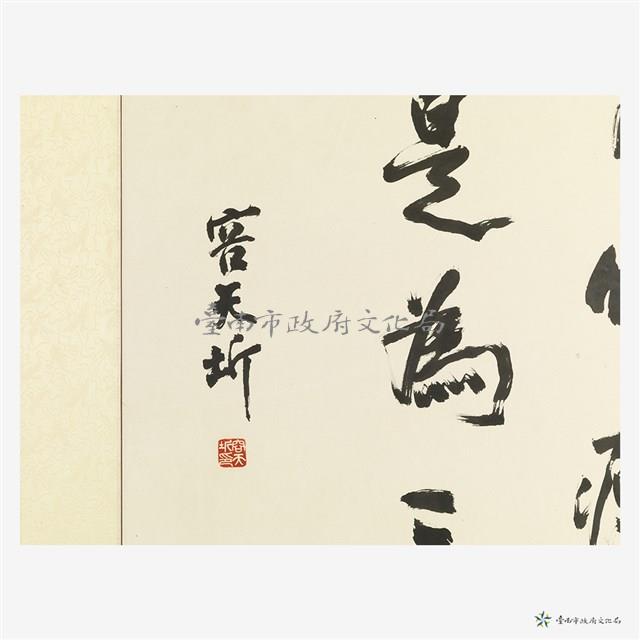 是為三
容天圻
容天圻印
臺南市政府文化局
臺南市政府文化局